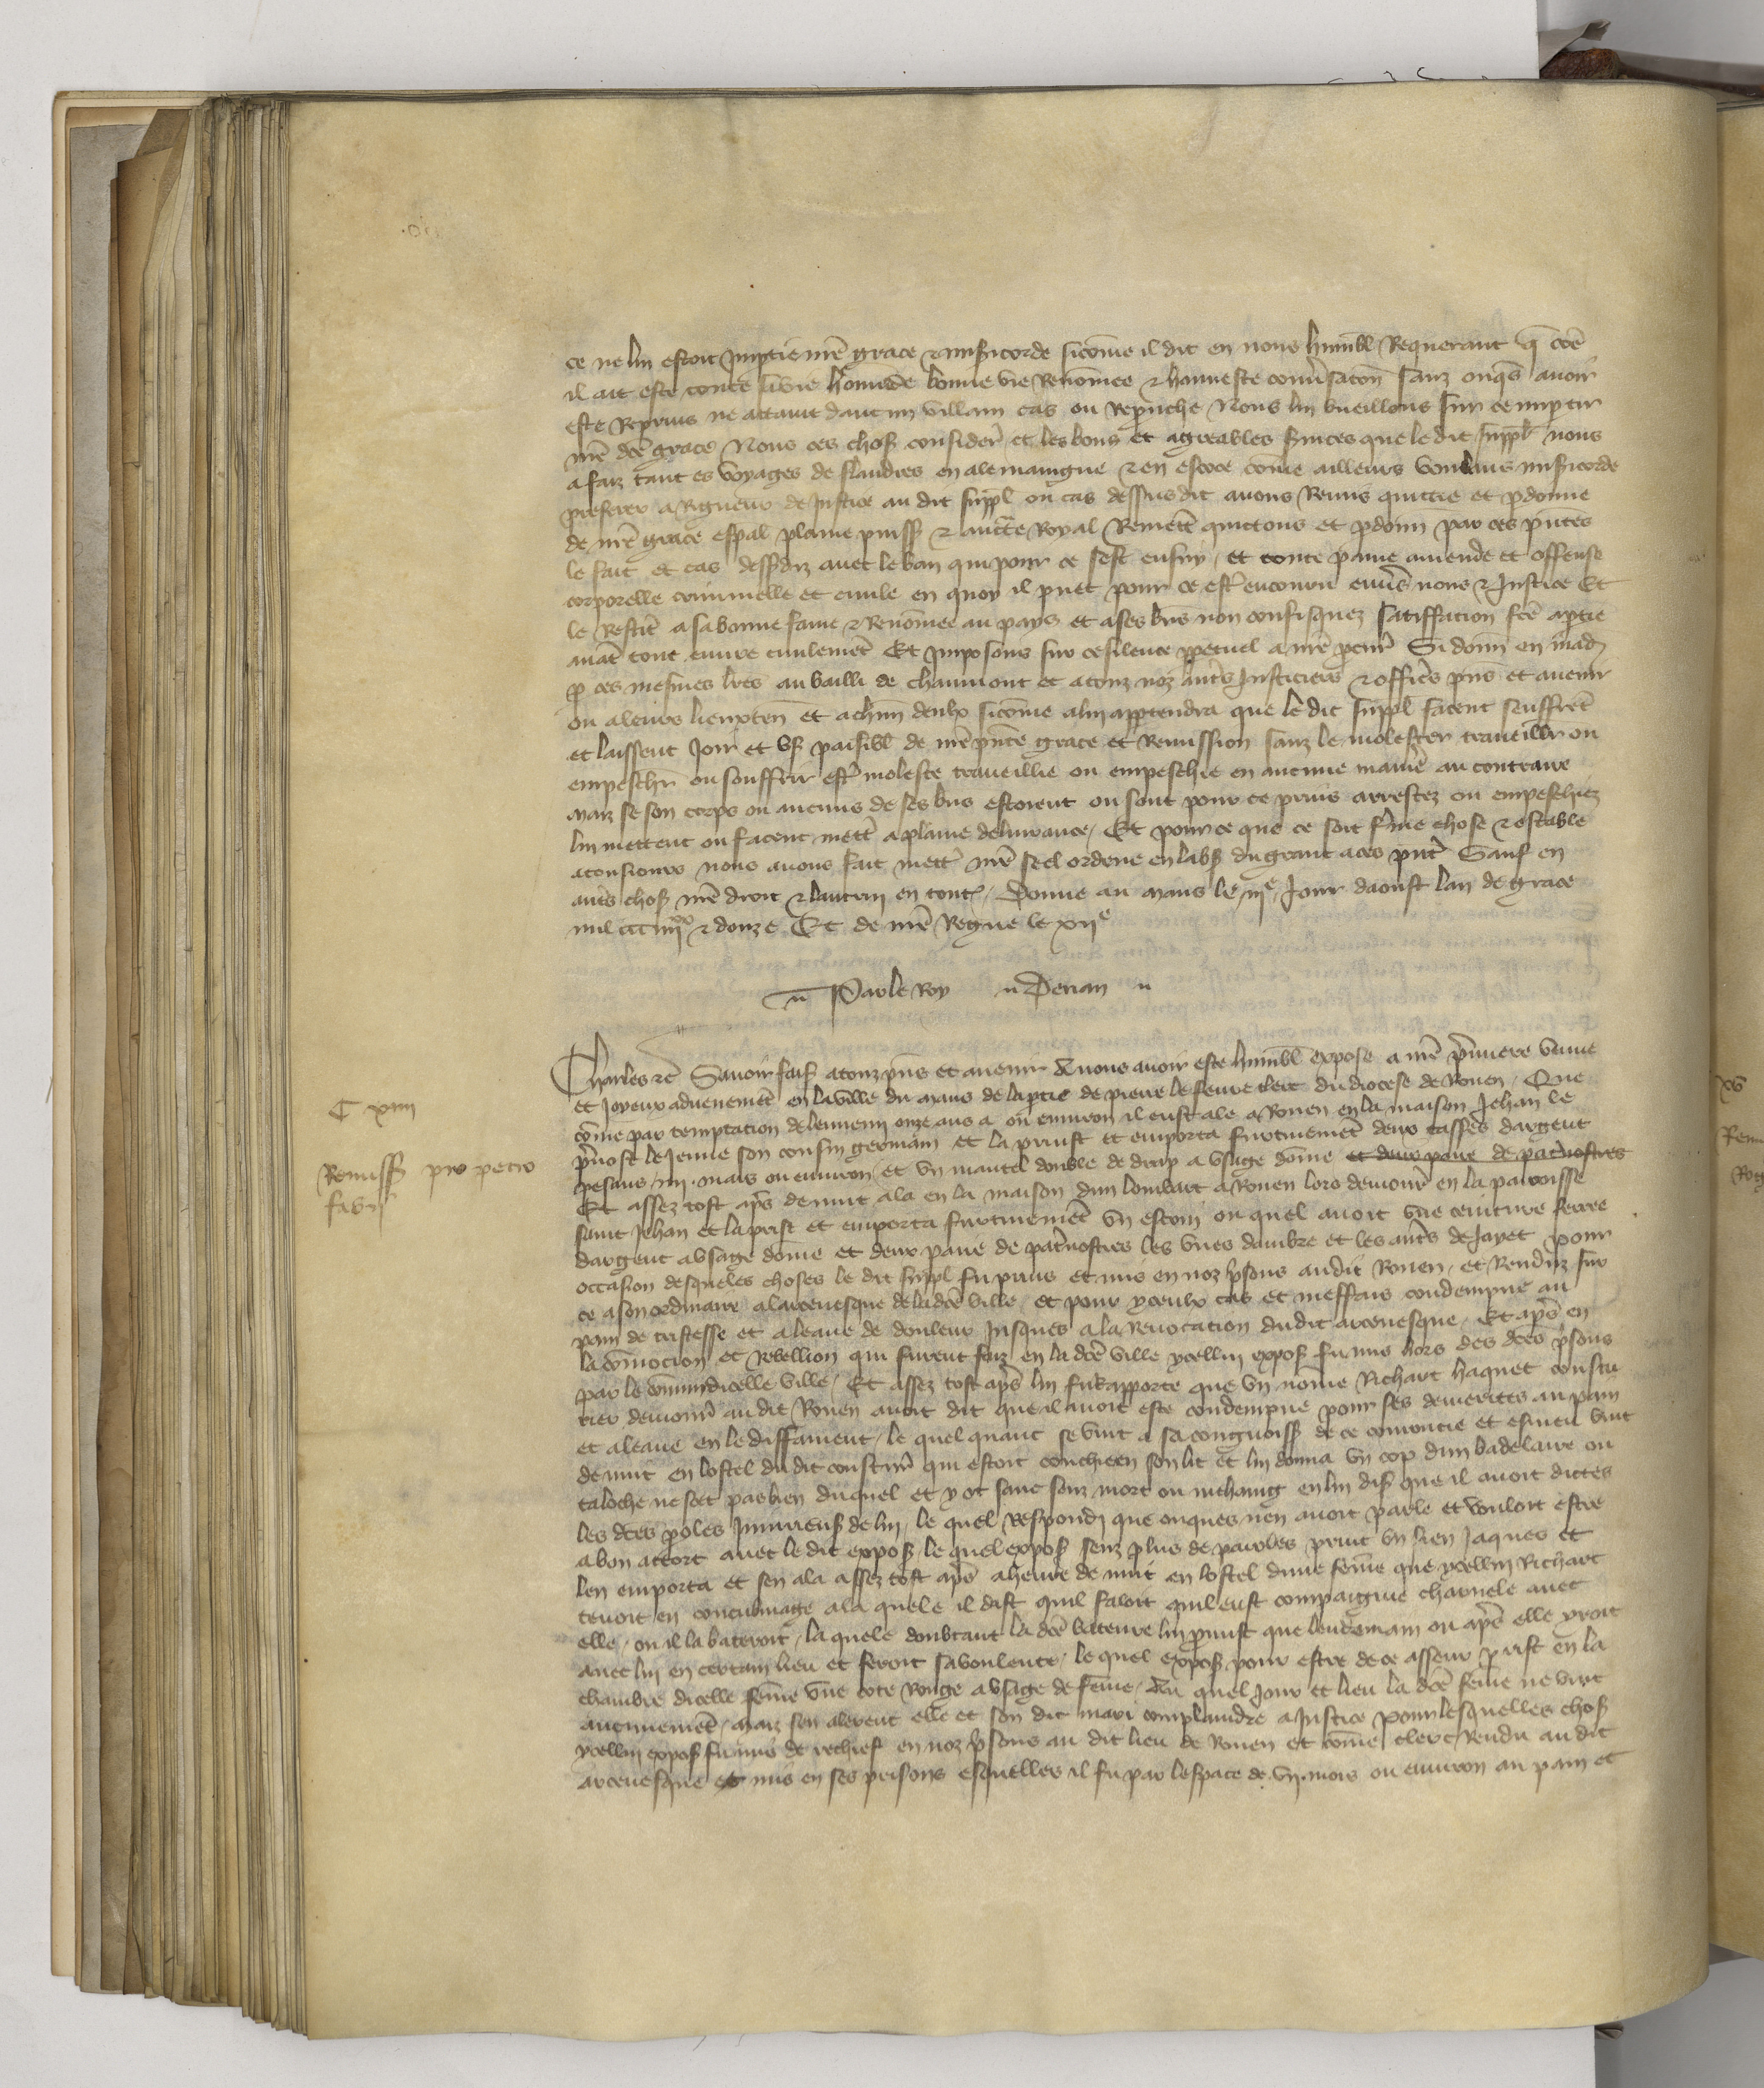 ce ne lui estoit imptie nr̃e grace & misicorde sicõme il dit en nous humbl̃ Requerant q̃ cõe
il ait este toute sa vie homme de bonne vie Renõmee & honneste conũsacõn sanz onqs̃ avoir
este Repruis ne attaint daucun villain cas ou Reprouche Nous lui vueillons sur ce imptir
nr̃e dc̃e grace Nous ces choses consider̃ et les bons et agreables suices que le dit suppl̃ nous
a faiz tant es voyages de flandres en alemaingne & en escoce cõme ailleurs voulans misicorde
preferer a Rigueur de Justice au dit suppl̃ ou cas dessusdit avons Remis quictie et pdonne
de nr̃e grace espal plaine puiss & auctte Royal Remettt̃ quictons et pdonn par ces pñtes
le fait et cas dessdiz avec le ban qui pour ce sest ensuy / et toute paine amende et offense
corporelle criminelle et civile en quoy il puet pour ce estr̃ encouru envs̃ nous & Justice Et
le Restit̃ a sa bonne fame & Renõmee au pays et a ses bñs non confisquez satiffacion fc̃e a ptie
avãt tout euvre civilemẽt Et Imposons sur ce silence ppetuel a nr̃e pcur̃ Si donn̄ en mãd
p ces mesmes lr̃es au bailli de chaumont et a touz noz autr̃s Justiciers & officr̃s pñs et avenir
ou a leurs lieuxten̄ et a chũn deulx sicõme a lui apptendra que le dit suppl̃ facent seuffrẽt
et laissent Joir et us̃ paisibl̃ de nr̃e pñte grace et Remission sanz le molester traveillr ou
empeschr ou souffrir estr̃ moleste traveillie ou empeschie en aucune manier̃ au contraire
maiz se son corps ou aucuns de ses bñs estoient ou sont pour ce pruis arrestez ou empeschiez
lui mettent ou facent mettr̃ a plaine delivrance / Et pour ce que ce soit f̃me chose & estable
a tousiours nous avons fait mettr̃ nr̃e seel ordene en labs du grant a ces pñt̃ Sauf en
autr̃s choses nr̃e droit & lautrui en tout / Donne au mans le iij e Jour daoust lan de grace
mil ccc iiij xx & donze Et de nr̃e Regne le xij e
Par le Roy Derian
Charles &c̃ Savoir fais̃ a touz pñs et avenir A nous avoir este humbl̃ expose a nr̃e p̃miere venue
et Joyeux advenemẽt en la ville du mans de la ptie de pierre le fevre clerc du diocese de Rouen / Que
cõme par temptacion de lennemi onze ans a ou environ il eust ale a Rouen en la maison Jehan le
p̃vost le Jeune son cousin germain et la prinst et emporta furtivemẽt deux tasses dargent
pesans iiij mars ou environ et un mantel double de drap a usage dõme et deux paire de pat̃nostres
Et assez tost apr̃s de nuit ala en la maison dun lombart a Rouen lors demour̃ en la parroisse
saint Jehan et la prist et emporta furtivemẽt un escrin ou quel avoit une ceinture ferree
dargent a usage dõme et deux paire de pat̃nostres les unes dambre et les autr̃s de Jayet pour
occasion desqueles choses le dit suppl̃ fu pruis et mis en noz p̃sons audit Rouen / et Renduz sur
ce a son ordinaire a larcevesque de la dc̃e ville / et pour yceulx cas et meffais condempne au
pain de tristesse et a leaue de douleur Jusques a la Revocation dudit arcevesque / Et apr̃s en
la cõmocion et Rebellion qui furent faiz en la dc̃e ville ycellui expos̃ fu mis hors des dc̃es p̃sons
par le cõmun dicelle ville / Et assez tost apr̃s lui fu Rapporte que un nõme Richart haquet coustu
rier demour̃ au dit Rouen avoit dit que il avoit este condempne pour ses demerites au pain
et a leaue en le diffamant / le quel quant se vint a sa congnoiss̃ de ce courroucie et esmeu vint
de nuit en lostel du dit coustur̃ qui estoit couchie en son lit et lui donna un cop dun badelaire ou
taloche ne scet pas bien duquel et y ot sanc sanz mort ou mehaing en lui dis̃ que il avoit dictes
les dc̃es poles Jnjurieus̃ de lui / le quel Respondi que onques nen avoit parle et vouloit estre
a bon accort avec le dit expos̃ le quel expos̃ senz plus de paroles prinst un lien Jaques et
len emporta et sen ala assez tost apr̃s a heure de nuit en lostel dune fem̃e que ycellui Richart
tenoit en concubinage a la quele il dist quil failoit quil eust compaignie charnele avec
elle / ou il la bateroit / la quele doubtant la dc̃e bateure lui p̃mist que lendemain ou apr̃s elle yroit
avec lui en certain lieu et feroit sa voulente / le quel expos̃ pour estre de ce asseur prist en la
chambre dicelle fem̃e une cote Rouge a usage de fem̃e / Au quel Jour et lieu la dc̃e fem̃e ne vint
aucunemẽt / maiz sen alerent elle et son dit mari complaindre a Justice pour lesquelles choses
ycellui expos̃ fu mis de rechief en noz p̃sons au dit lieu de Rouen et cõme clerc Rendu au dit
arcevesque et mis en ses prisons esquelles il fu par lespace de vij mois ou environ au pain et
C xiiii
Remiss̃ pro petro
fabri